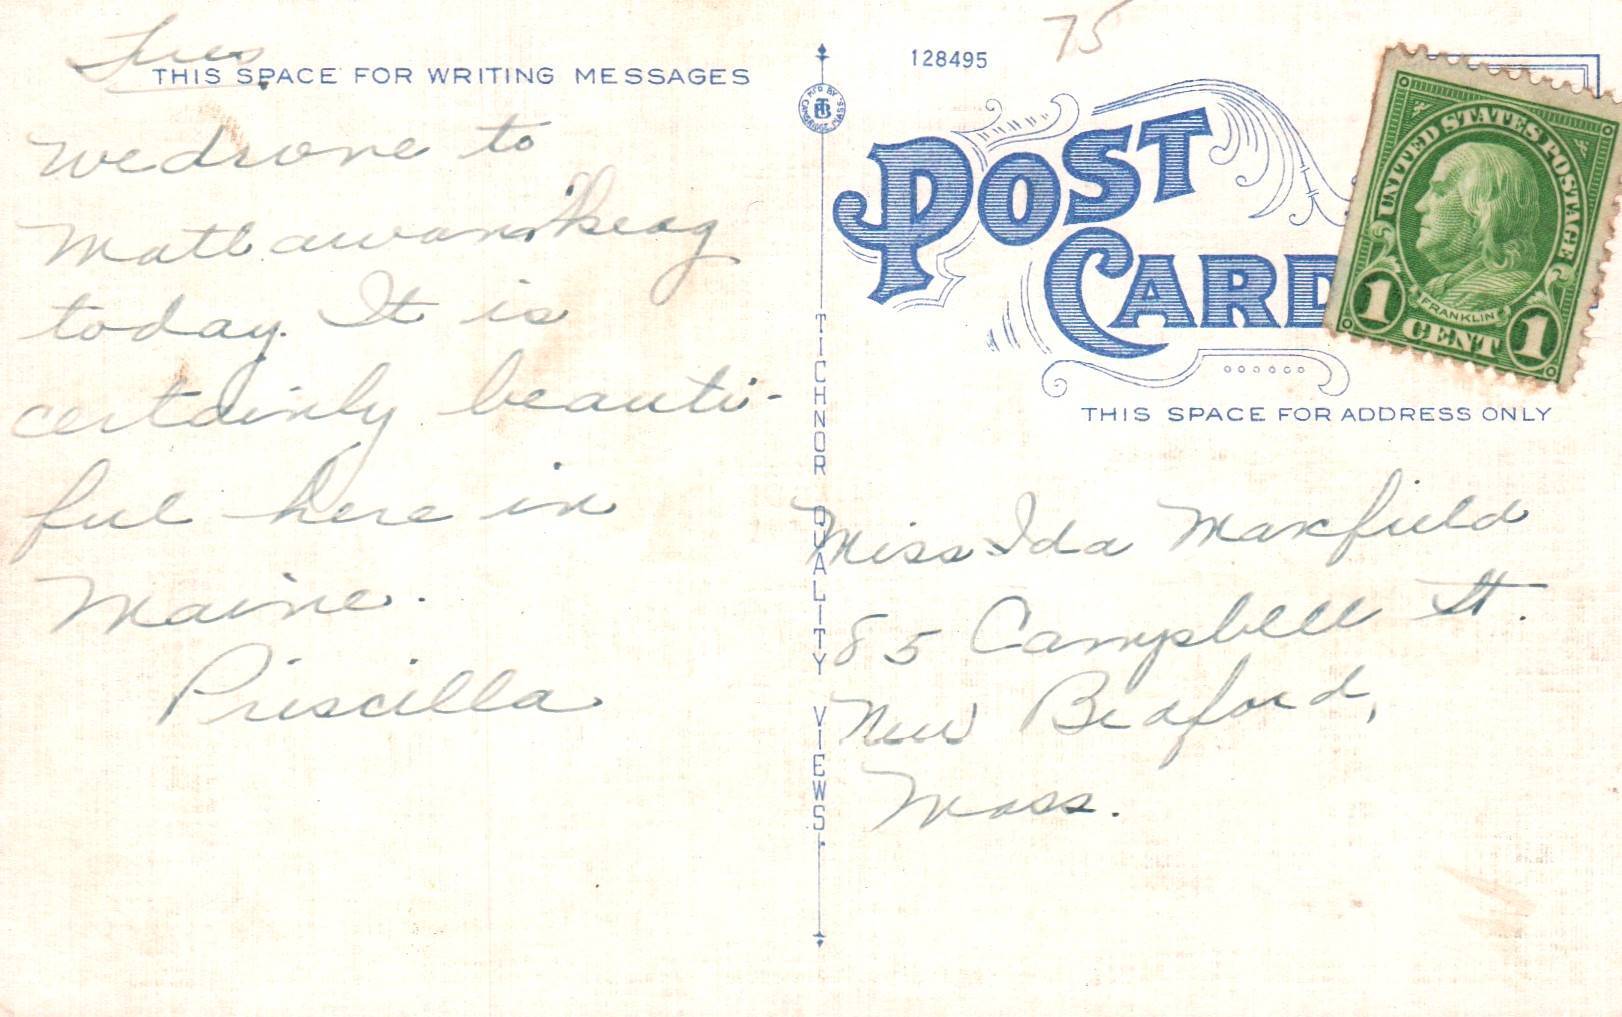 Tues.
THIS SPACE FOR WRITING MESSAGES
We drove to
Mattawamkeag
today. It is
certainly beauti-
ful here in
Maine.
Priscilla
MFG BY
TB
CAMBRIDGE, MASS.
TICHNOR QUALITY VIEWS.
128495
75
POST
CARD
UNITED STATES POSTAGE
FRANKLIN
1 CENT 1
THIS SPACE FOR ADDRESS ONLY
Miss Ida Maxfield
85 Campbell St.
New Bedford,
Mass.